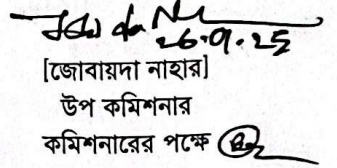 26.9.25
[জোবায়দা নাহার]
উপ কমিশনার
কমিশনারের পক্ষে